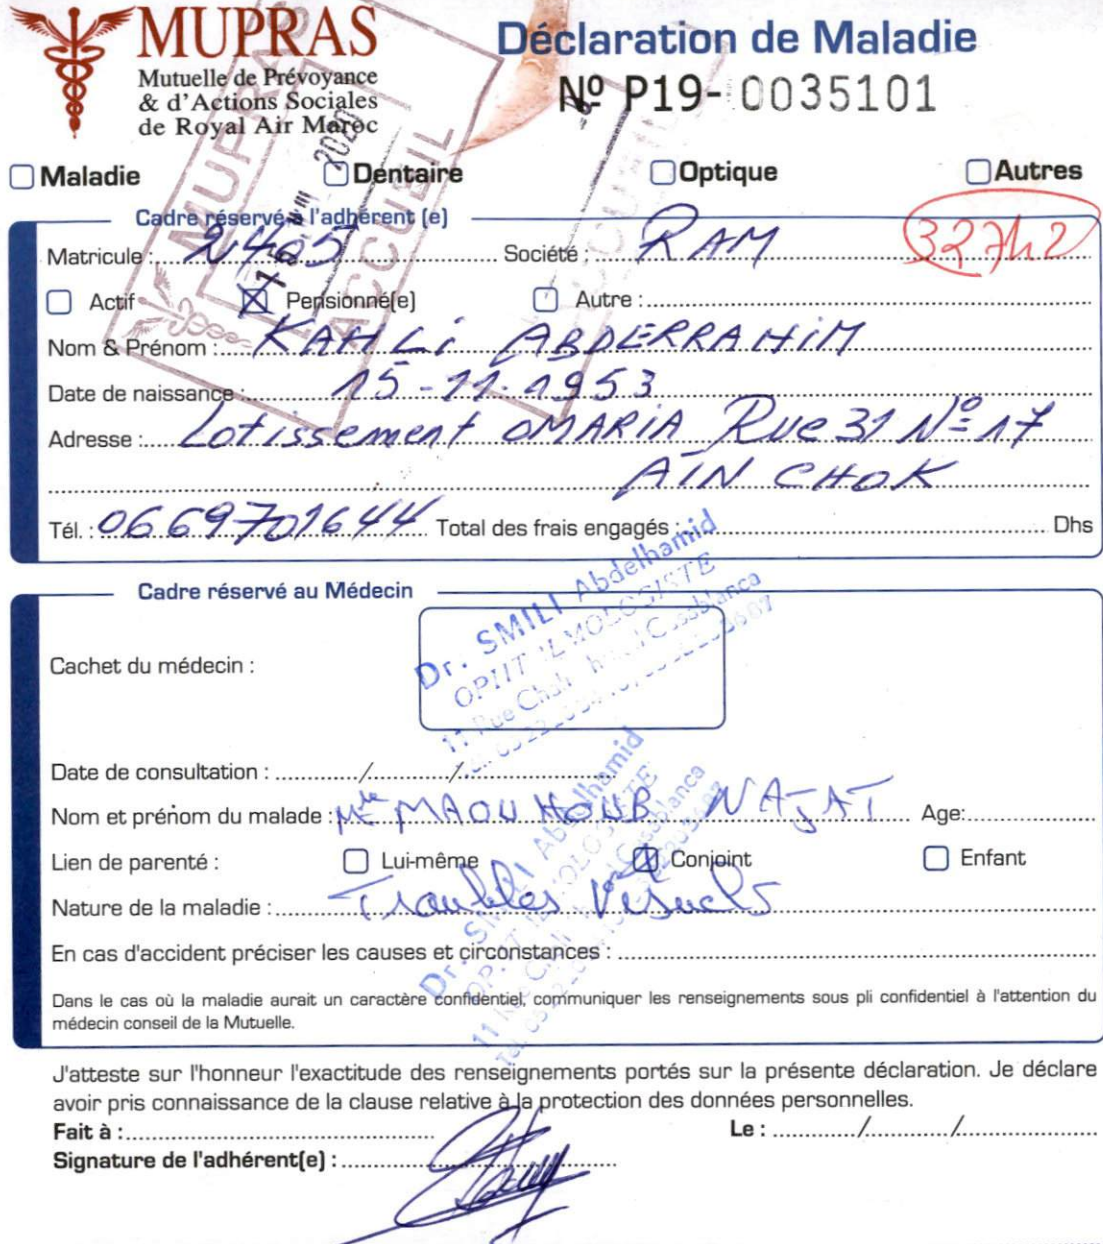 MUPRAS
Mutuelle de Prévoyance
& d'Actions Sociales
de Royal Air Maroc
Déclaration de Maladie
Nº P19- 0035101
Maladie Dentaire Optique Autres
MUPRAS
ACCUEIL
2020
Cadre réservé à l'adhérent (e)
Matricule : 2465 Société : RAM
32742
Actif Pensionné(e) Autre :
Nom & Prénom : KAHLi ABDERRAHiM
Date de naissance : 15-11-1953
Adresse : Lotissement OMARiA Rue 31 Nº=17
AÏN CHOK
Tél. : 0669701644 Total des frais engagés : Dhs
Cadre réservé au Médecin
Cachet du médecin :
Dr. SMILI Abdelhamid
11 Rue Casablanca
Date de consultation : / /
Nom et prénom du malade : MAOUHOUB NAJAT Age:
Lien de parenté : Lui-même Conjoint Enfant
Nature de la maladie : Troubles Visuels
En cas d'accident préciser les causes et circonstances :
Dr. SMILI Abdelhamid
11 Casablanca
Dans le cas où la maladie aurait un caractère confidentiel, communiquer les renseignements sous pli confidentiel à l'attention du
médecin conseil de la Mutuelle.
J'atteste sur l'honneur l'exactitude des renseignements portés sur la présente déclaration. Je déclare
avoir pris connaissance de la clause relative à la protection des données personnelles.
Fait à : Le : / /
Signature de l'adhérent(e) :